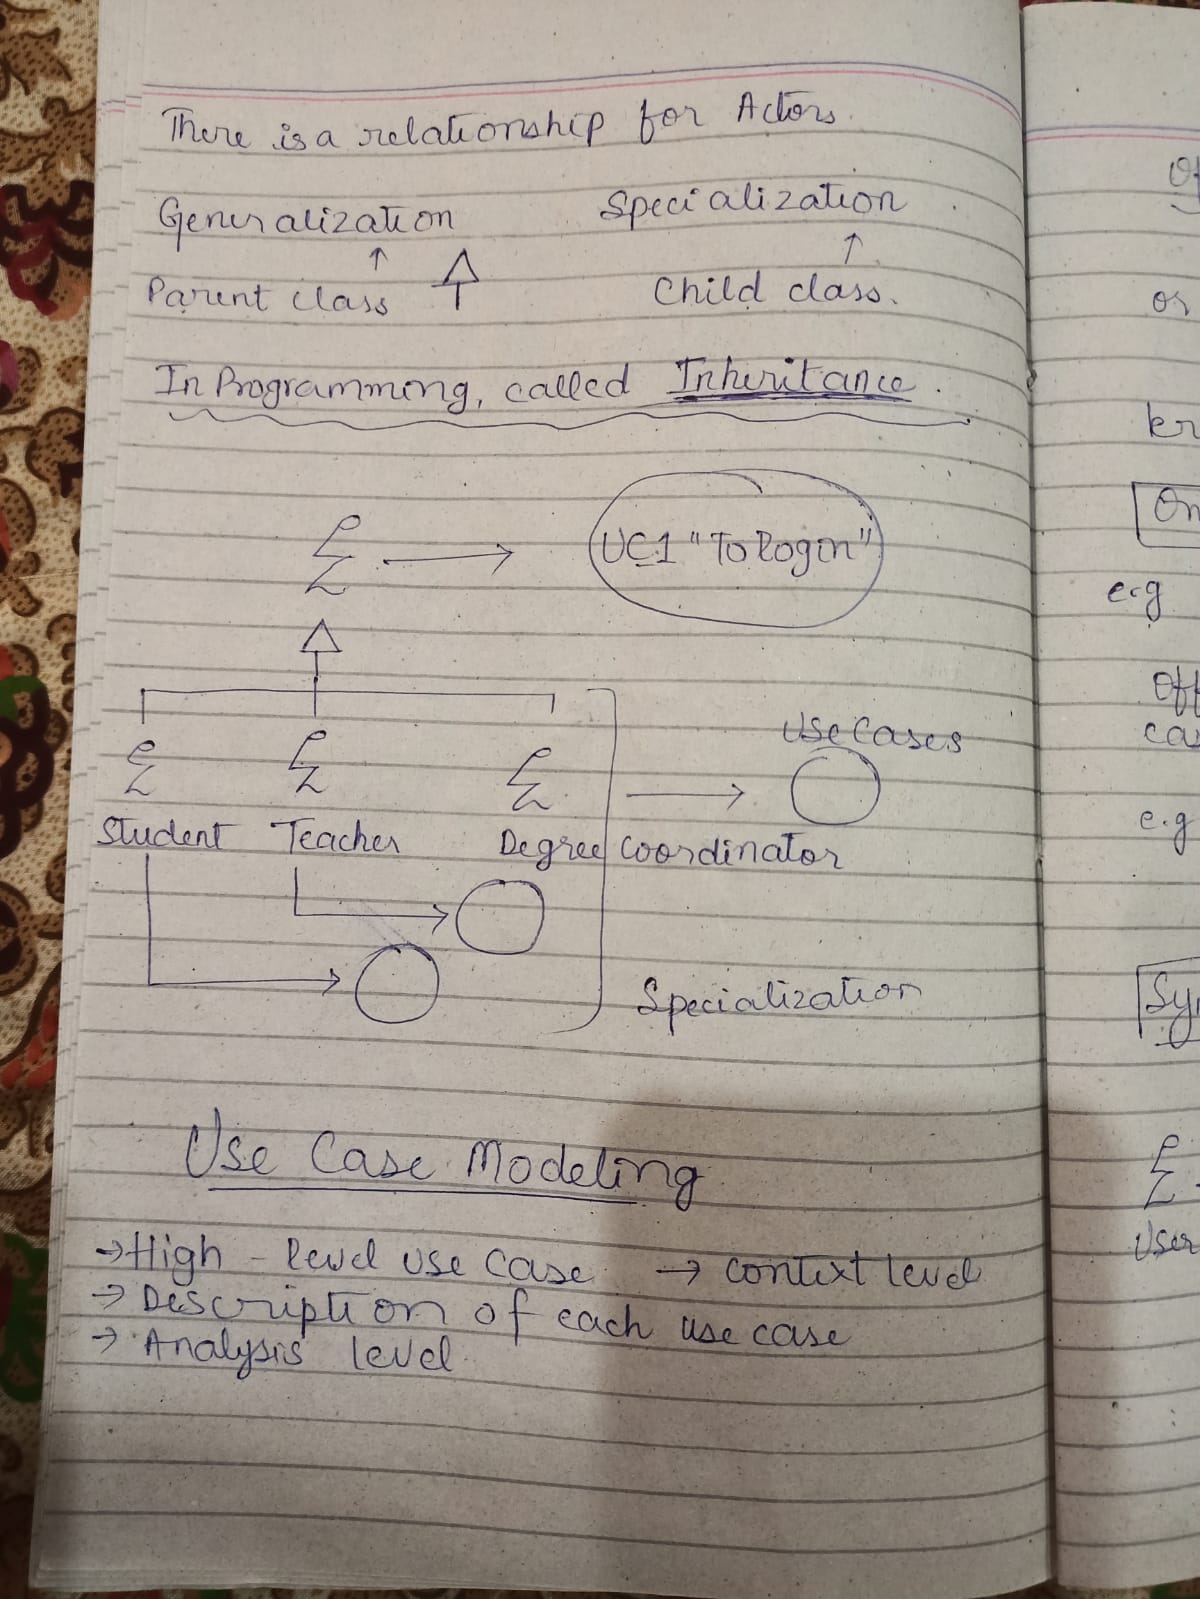 There is a relationship for Actors.
Generalization Specialization
↑ ↑
Parent class Child class.
In Programming, called Inheritance.
UC1 "To Login"
Use Cases
Student Teacher Degree Coordinator
Specialization
Use Case Modeling
→ High - level use case → context level
→ Description of each use case
→ Analysis level
or
e.g
e.g
User